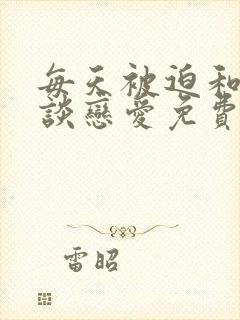 每天被迫和
談戀愛免費
雷昭